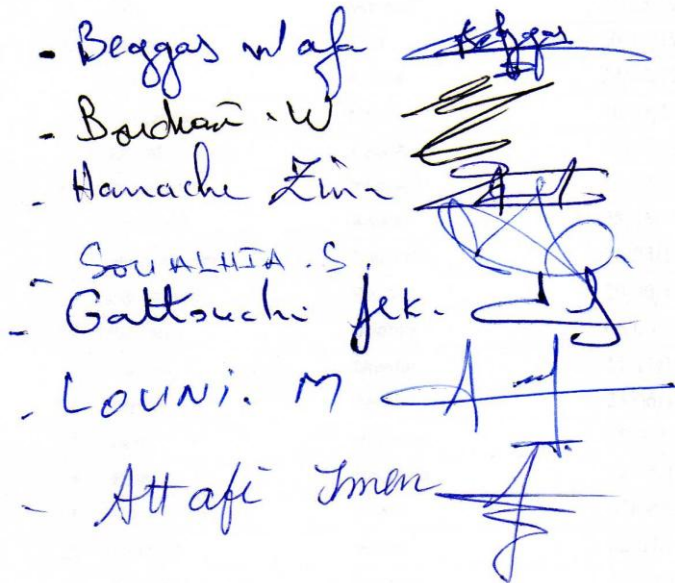 - Beggas Wafa Beggas
- Boudiaf . W
- Hamache Zina
- SOUALHIA . S.
- Gattouchi
- LOUNI . M
- Attafi Imen